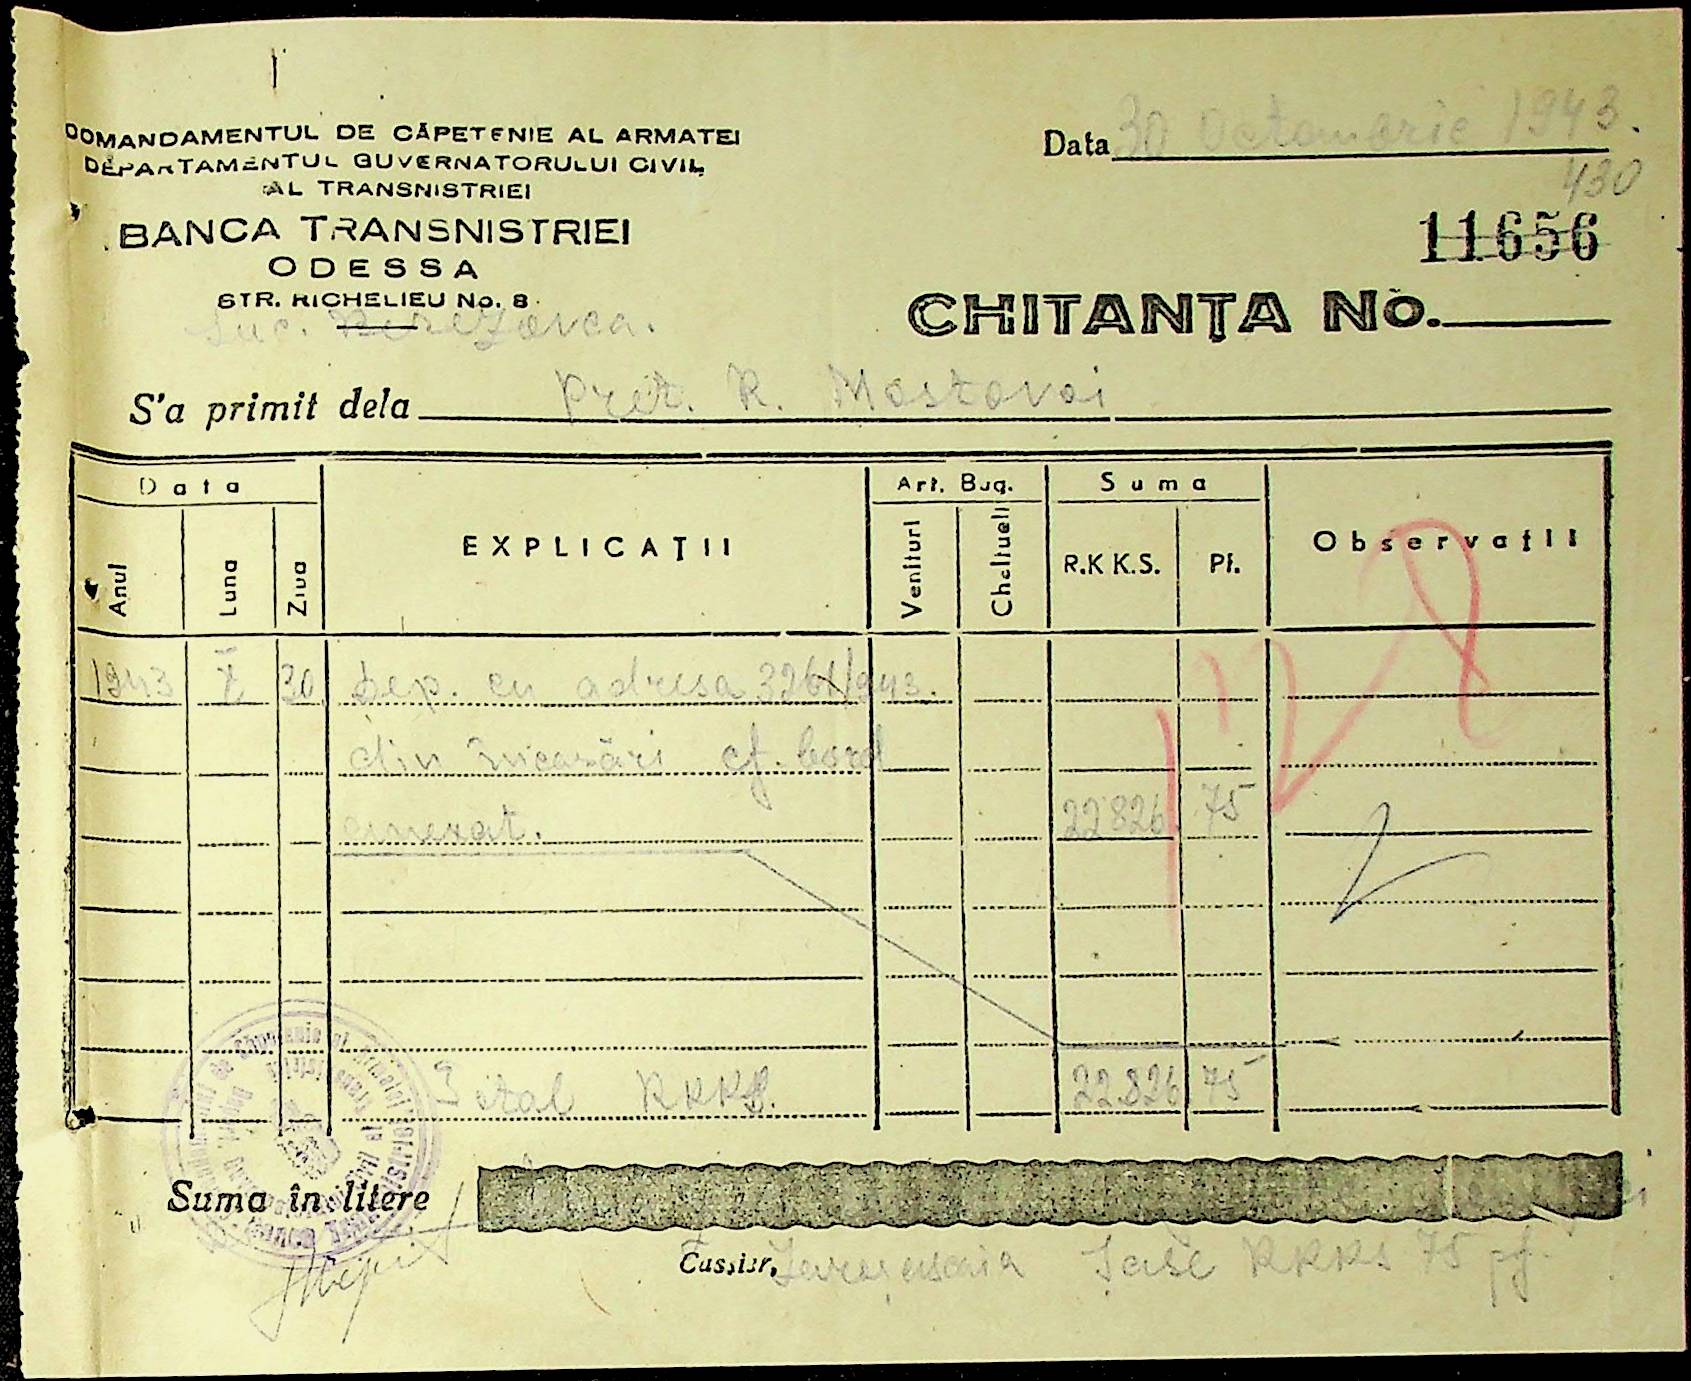 COMANDAMENTUL DE CĂPETENIE AL ARMATEI
DEPARTAMENTUL GUVERNATORULUI CIVIL
AL TRANSNISTRIEI
BANCA TRANSNISTRIEI
ODESSA
STR. RICHELIEU No. 8
Suc. Berezovca.
Data 30 Octombrie 1943.
430
11656
CHITANȚA No.
S'a primit dela Pret. R. Mostovoi
Data
Art. Bug.
Suma
Anul
Luna
Ziua
EXPLICAȚII
Venituri
Cheltueli
R.K K.S.
Pf.
Observații
1943 X 30 Dep. cu adresa 3261/943.
din încasări cf. bord
anexat. 22826 75
128
Total RKKS. 22.826 75
Suma în litere
Cassier,
șase RKKS 75 pf.